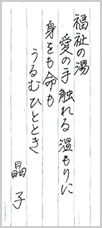 福祉の湯
愛の手触れる温もりに
身をも命も
うるむひととき
晶子